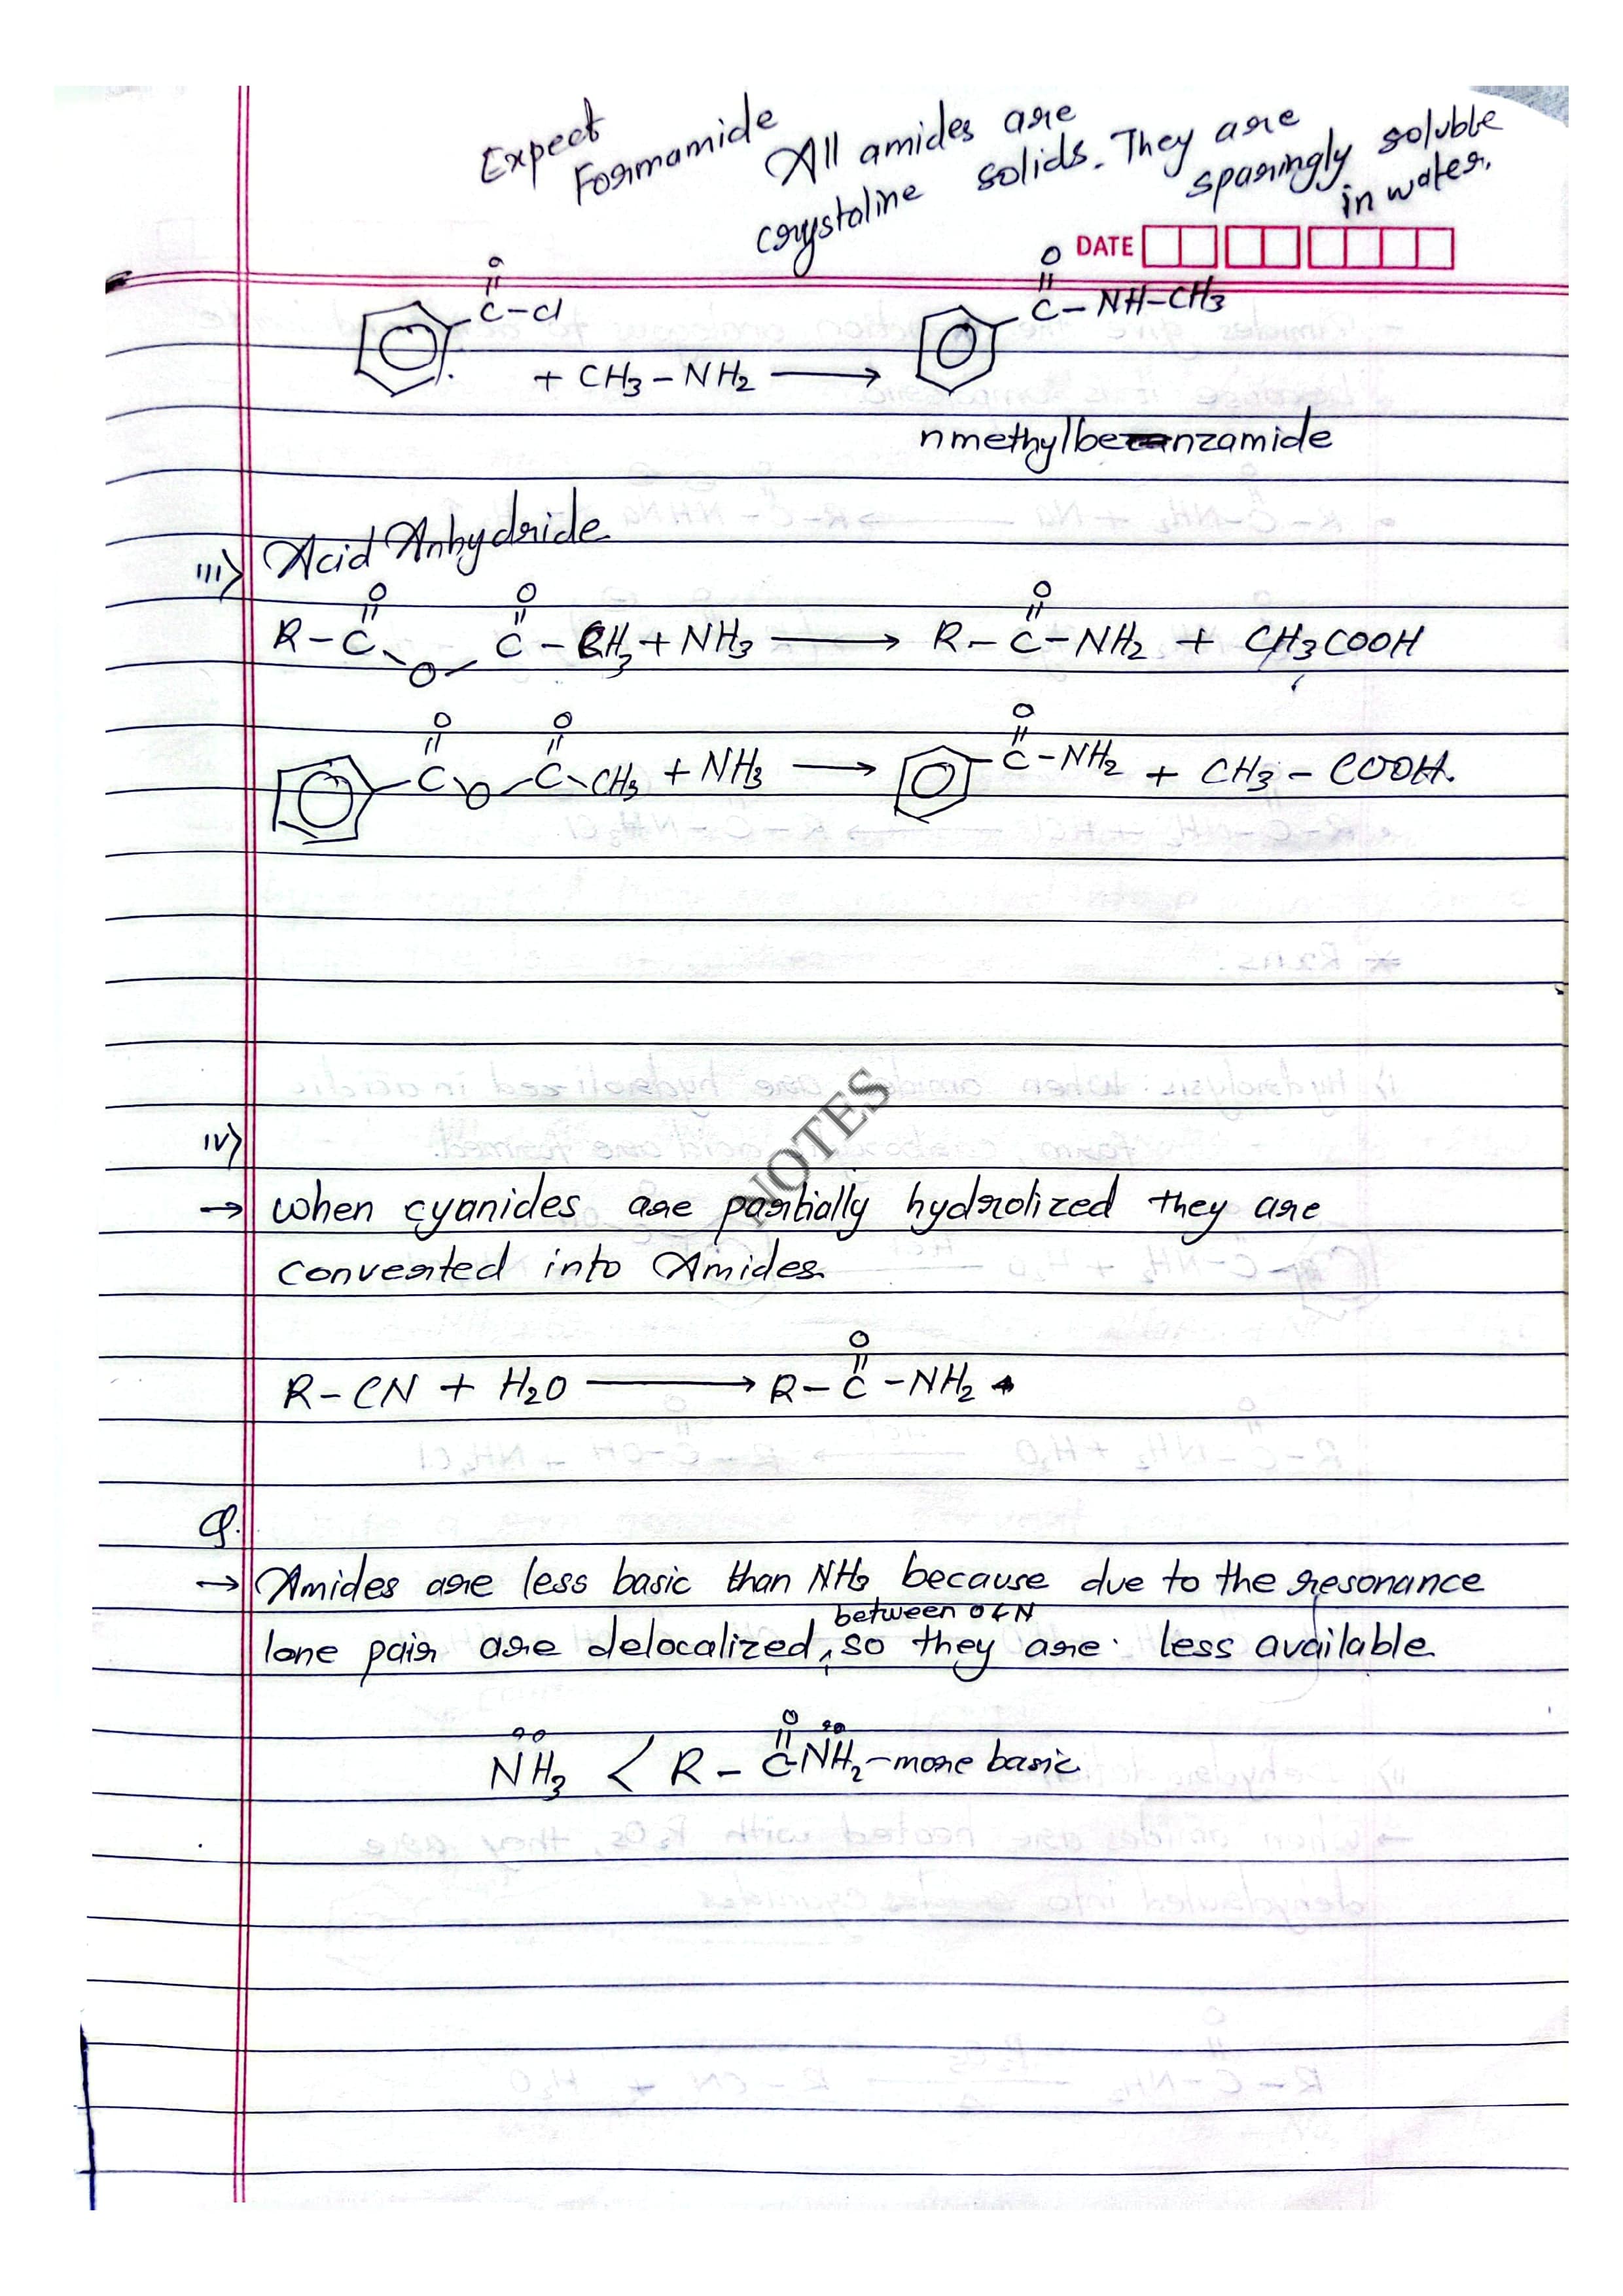 Expect
Formamide
All amides are
crystaline solids. They are
sparingly soluble
in water.
DATE
O
||
C-Cl
+ CH3-NH2 ⟶
O
||
C-NH-CH3
nmethylbenzamide
III) Acid Anhydride
O O O
|| || ||
R-C-O-C-CH3 + NH3 ⟶ R-C-NH2 + CH3COOH
O O O
|| || ||
C-O-C-CH3 + NH3 ⟶ C-NH2 + CH3-COOH.
IV)
→ when cyanides are partially hydrolized they are
converted into Amides.
NOTES
O
||
R-CN + H2O ⟶ R-C-NH2
Q.
→ Amides are less basic than NH3 because due to the resonance
between O & N
lone pair are delocalized, so they are less available
O
||
NH3 < R-C-NH2-more basic